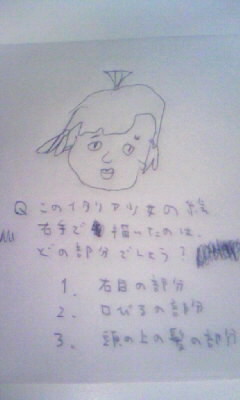 Q このイタリア少女の絵
右手で描ったのは、
どの部分でしょう?
1. 右目の部分
2. 口びるの部分
3. 頭の上の髪の部分